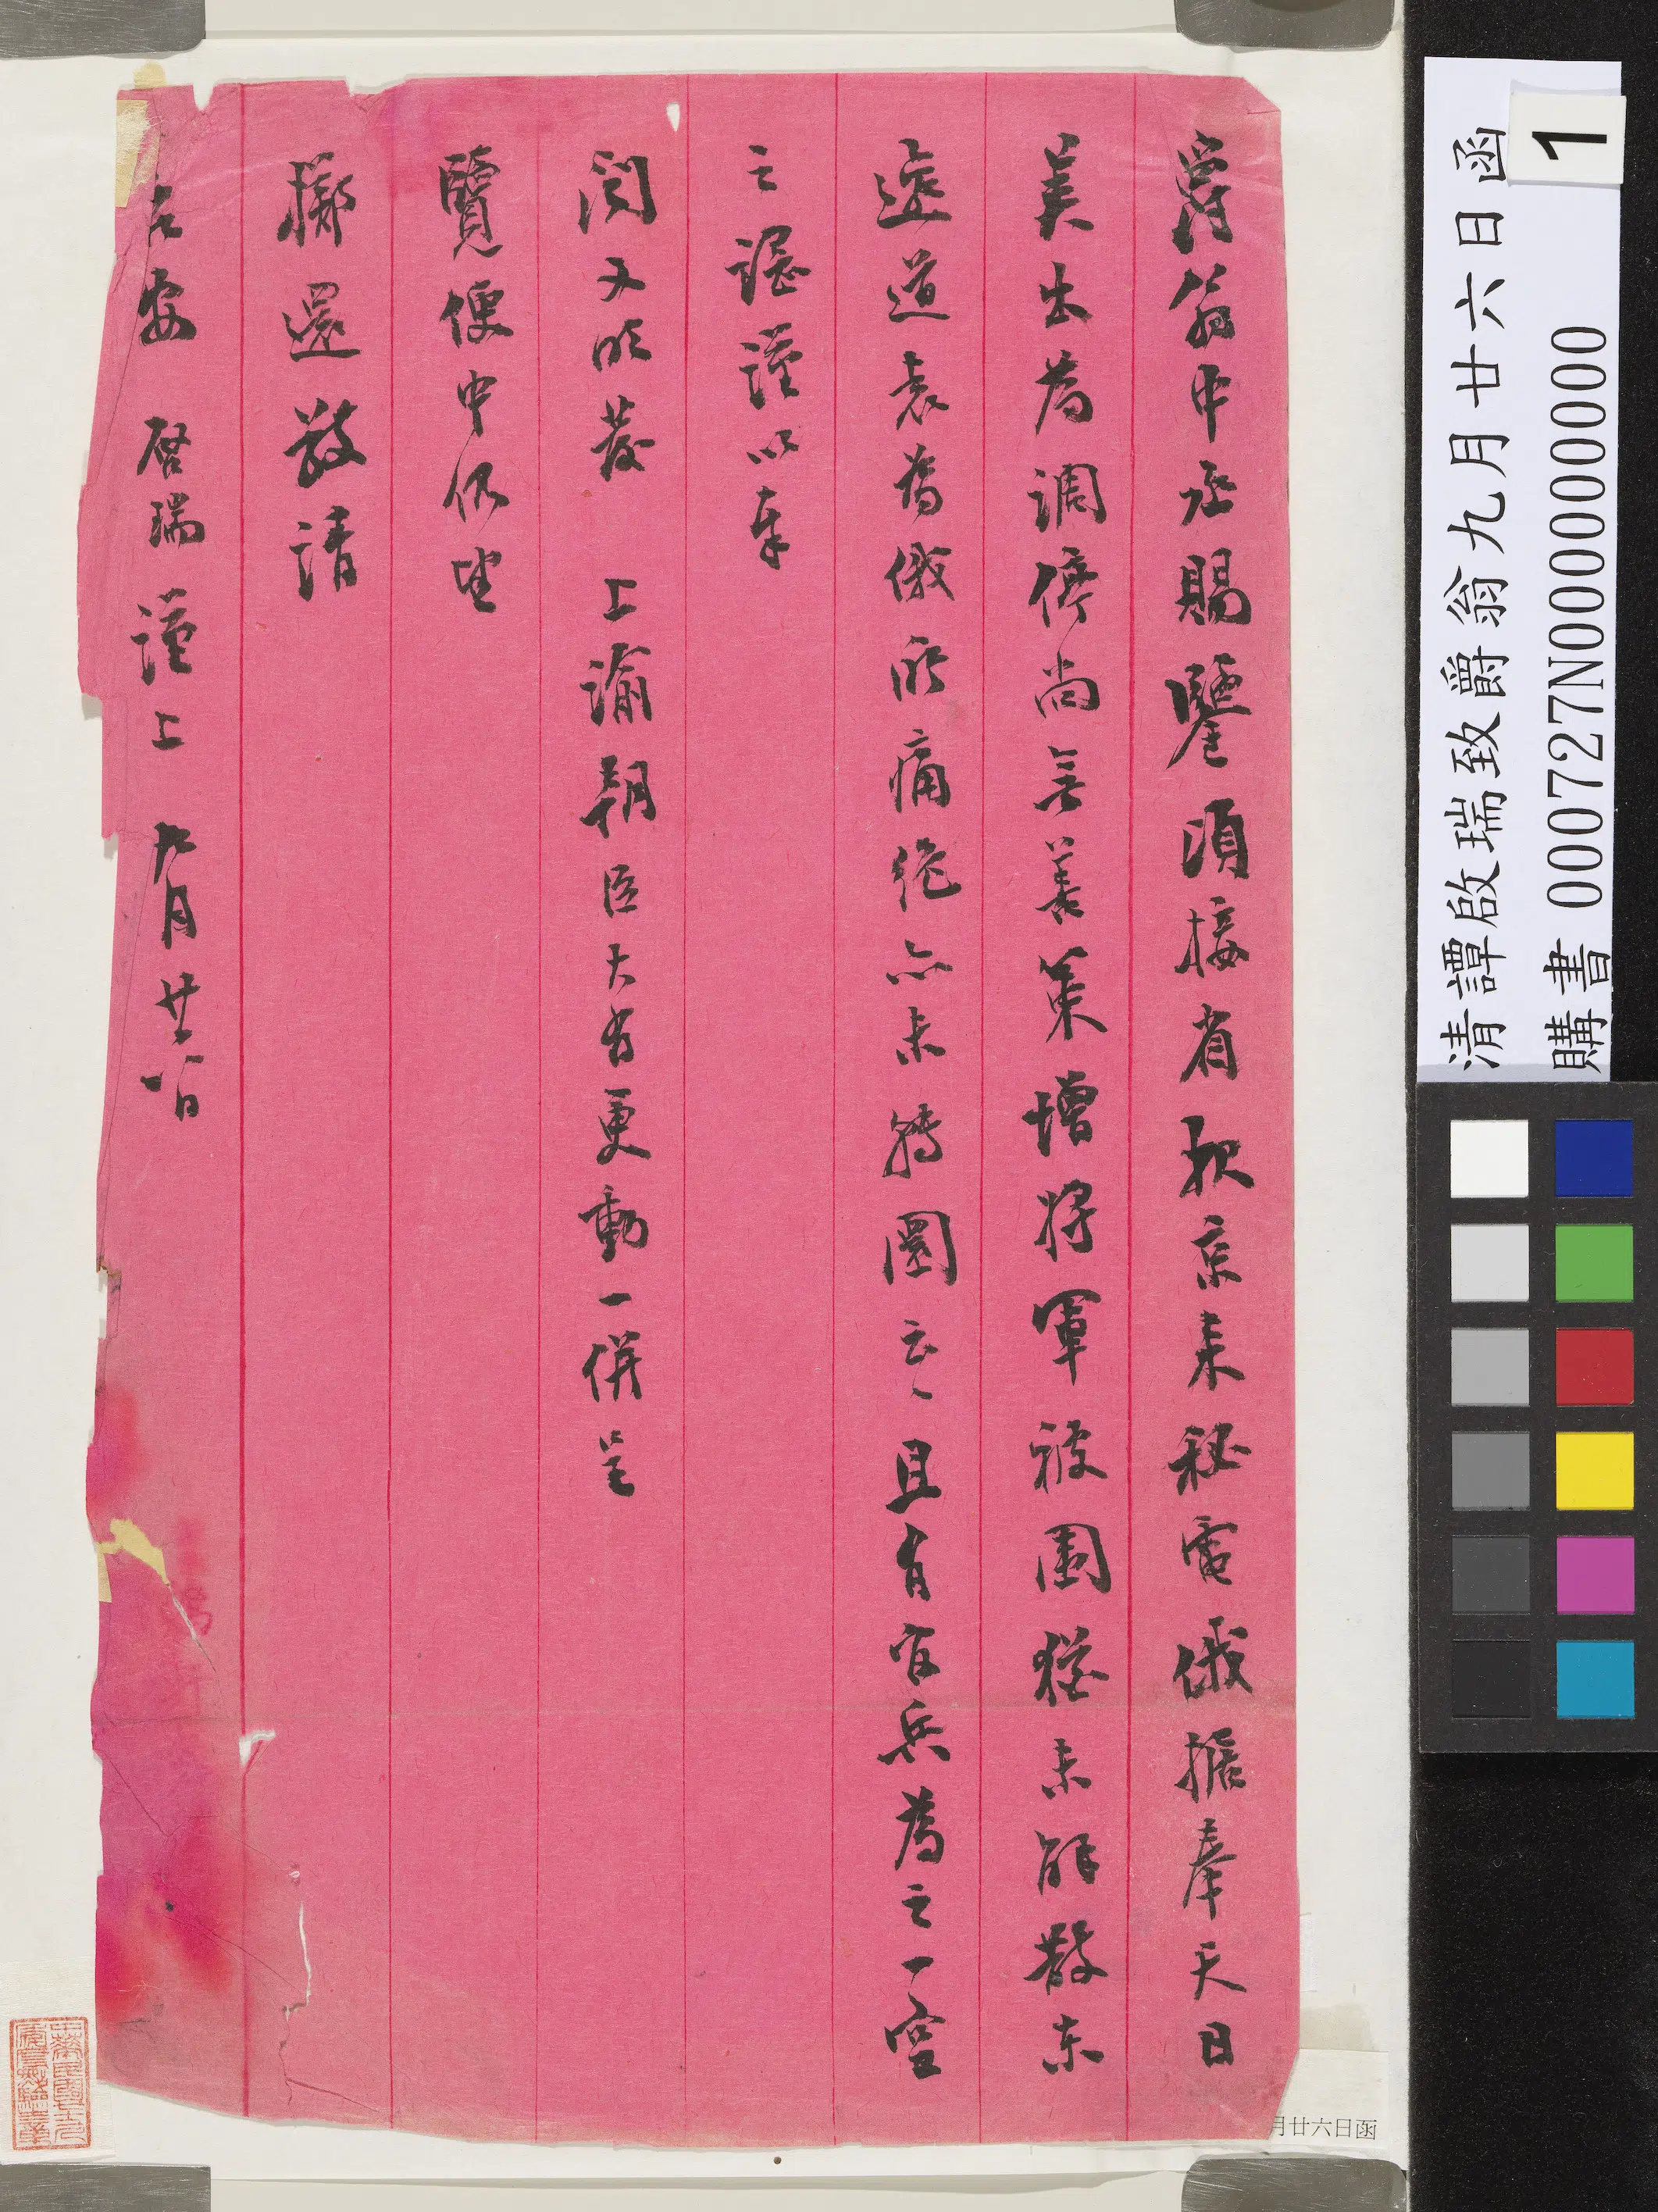 爵翁中丞賜鑒頃接省祕京來秘電俄據奉天日
美出為調停尚無善策增將軍被圍猶未解散東
邊道袁為俄所痛絕亦未轉圜云云且有官兵為之一空
之謠謹以奉
閱又昨發 上諭朝臣大有更動一併呈
覽便中仍望
擲還敬請
安 啓瑞謹上 九月廿六日
清譚啟瑞致爵翁九月廿六日函
購書 000727N000000000
1
月廿六日函